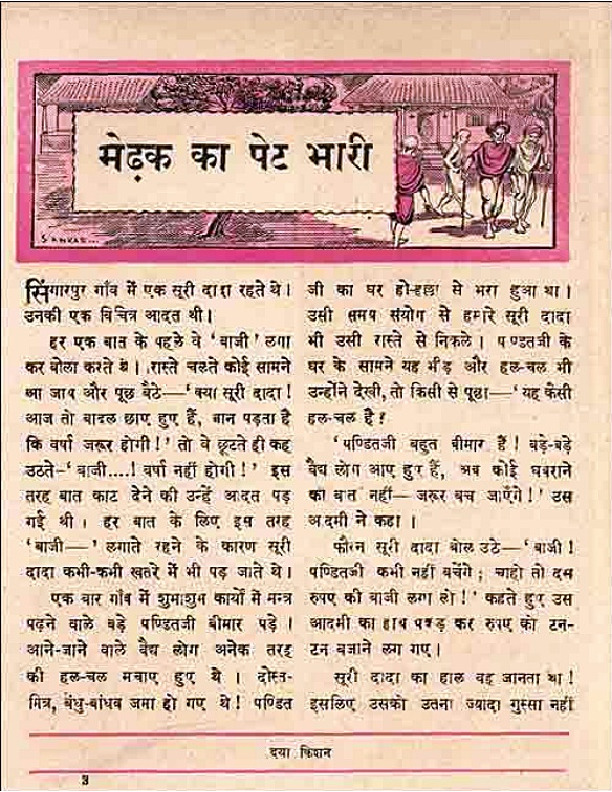 मेढ़क का पेट भारी
SANKAR...
सिंगारपुर गाँव में एक सूरी दादा रहते थे।
उनकी एक विचित्र आदत थी।
हर एक बात के पहले वे 'बाजी' लगा
कर बोला करते थे। रास्ते चलते कोई सामने
आ जाय और पूछ बैठे—'क्या सूरी दादा!
आज तो बादल छाए हुए हैं, जान पड़ता है
कि वर्षा जरूर होगी!' तो वे छूटते ही कह
उठते-'बाजी....! वर्षा नहीं होगी!' इस
तरह बात काट देने की उन्हें आदत पड़
गई थी। हर बात के लिए इस तरह
'बाजी—' लगाते रहने के कारण सूरी
दादा कभी-कभी खतरे में भी पड़ जाते थे।
एक बार गाँव में शुभाशुभ कार्यों में मन्त्र
पढ़ने वाले बड़े पण्डितजी बीमार पड़े।
आने-जाने वाले वैद्य लोग अनेक तरह
की हल-चल मचाए हुए थे। दोस्त-
मित्र, बंधु-बांधव जमा हो गए थे! पण्डित
जी का घर हो-हल्ला से भरा हुआ था।
उसी समय संयोग से हमारे सूरी दादा
भी उसी रास्ते से निकले। पण्डतजी के
घर के सामने यह भीड़ और हल-चल भी
उन्होंने देखी, तो किसी से पूछा—'यह कैसी
हल-चल है?
'पण्डितजी बहुत बीमार हैं! बड़े-बड़े
वैद्य लोग आए हुए हैं, अब कोई घबराने
की बात नहीं— जरूर बच जाएँगे!' उस
आदमी ने कहा।
फौरन सूरी दादा बोल उठे—'बाजी!
पण्डितजी कभी नहीं बचेंगे; चाहो तो दस
रुपए की बाजी लगा लो!' कहते हुए उस
आदमी का हाथ पकड़ कर रुपए को टन-
टन बजाने लग गए।
सूरी दादा का हाल वह जानता था!
इसलिए उसको उतना ज्यादा गुस्सा नहीं
दया किशन
3